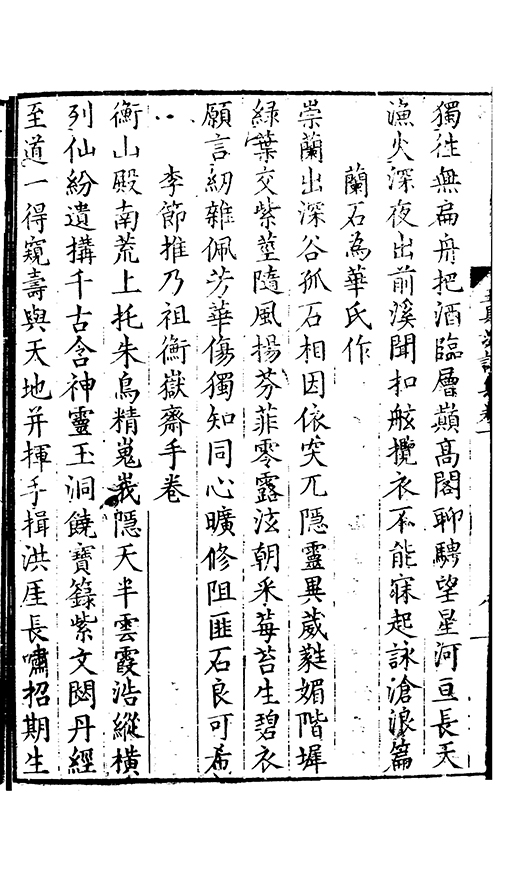 獨往無扁舟把酒臨層巔高閣聊騁望星河亘長天
漁火深夜出前溪聞扣舷攬衣不能寐起詠滄浪篇
蘭石為華氏作
崇蘭出深谷孤石相因依突兀隱靈異葳蕤媚階墀
綠葉交紫莖隨風揚芬菲零露泫朝采莓苔生碧衣
願言紉雜佩芳華傷獨知同心曠修阻匪石良可希
李節推乃祖衡嶽齋手卷
衡山殿南荒上托朱鳥精嵬峩隱天半雲霞浩縱橫
列仙紛遺搆千古含神靈玉洞饒寶籙紫文閟丹經
至道一得窺壽與天地并揮手揖洪厓長嘯招期生